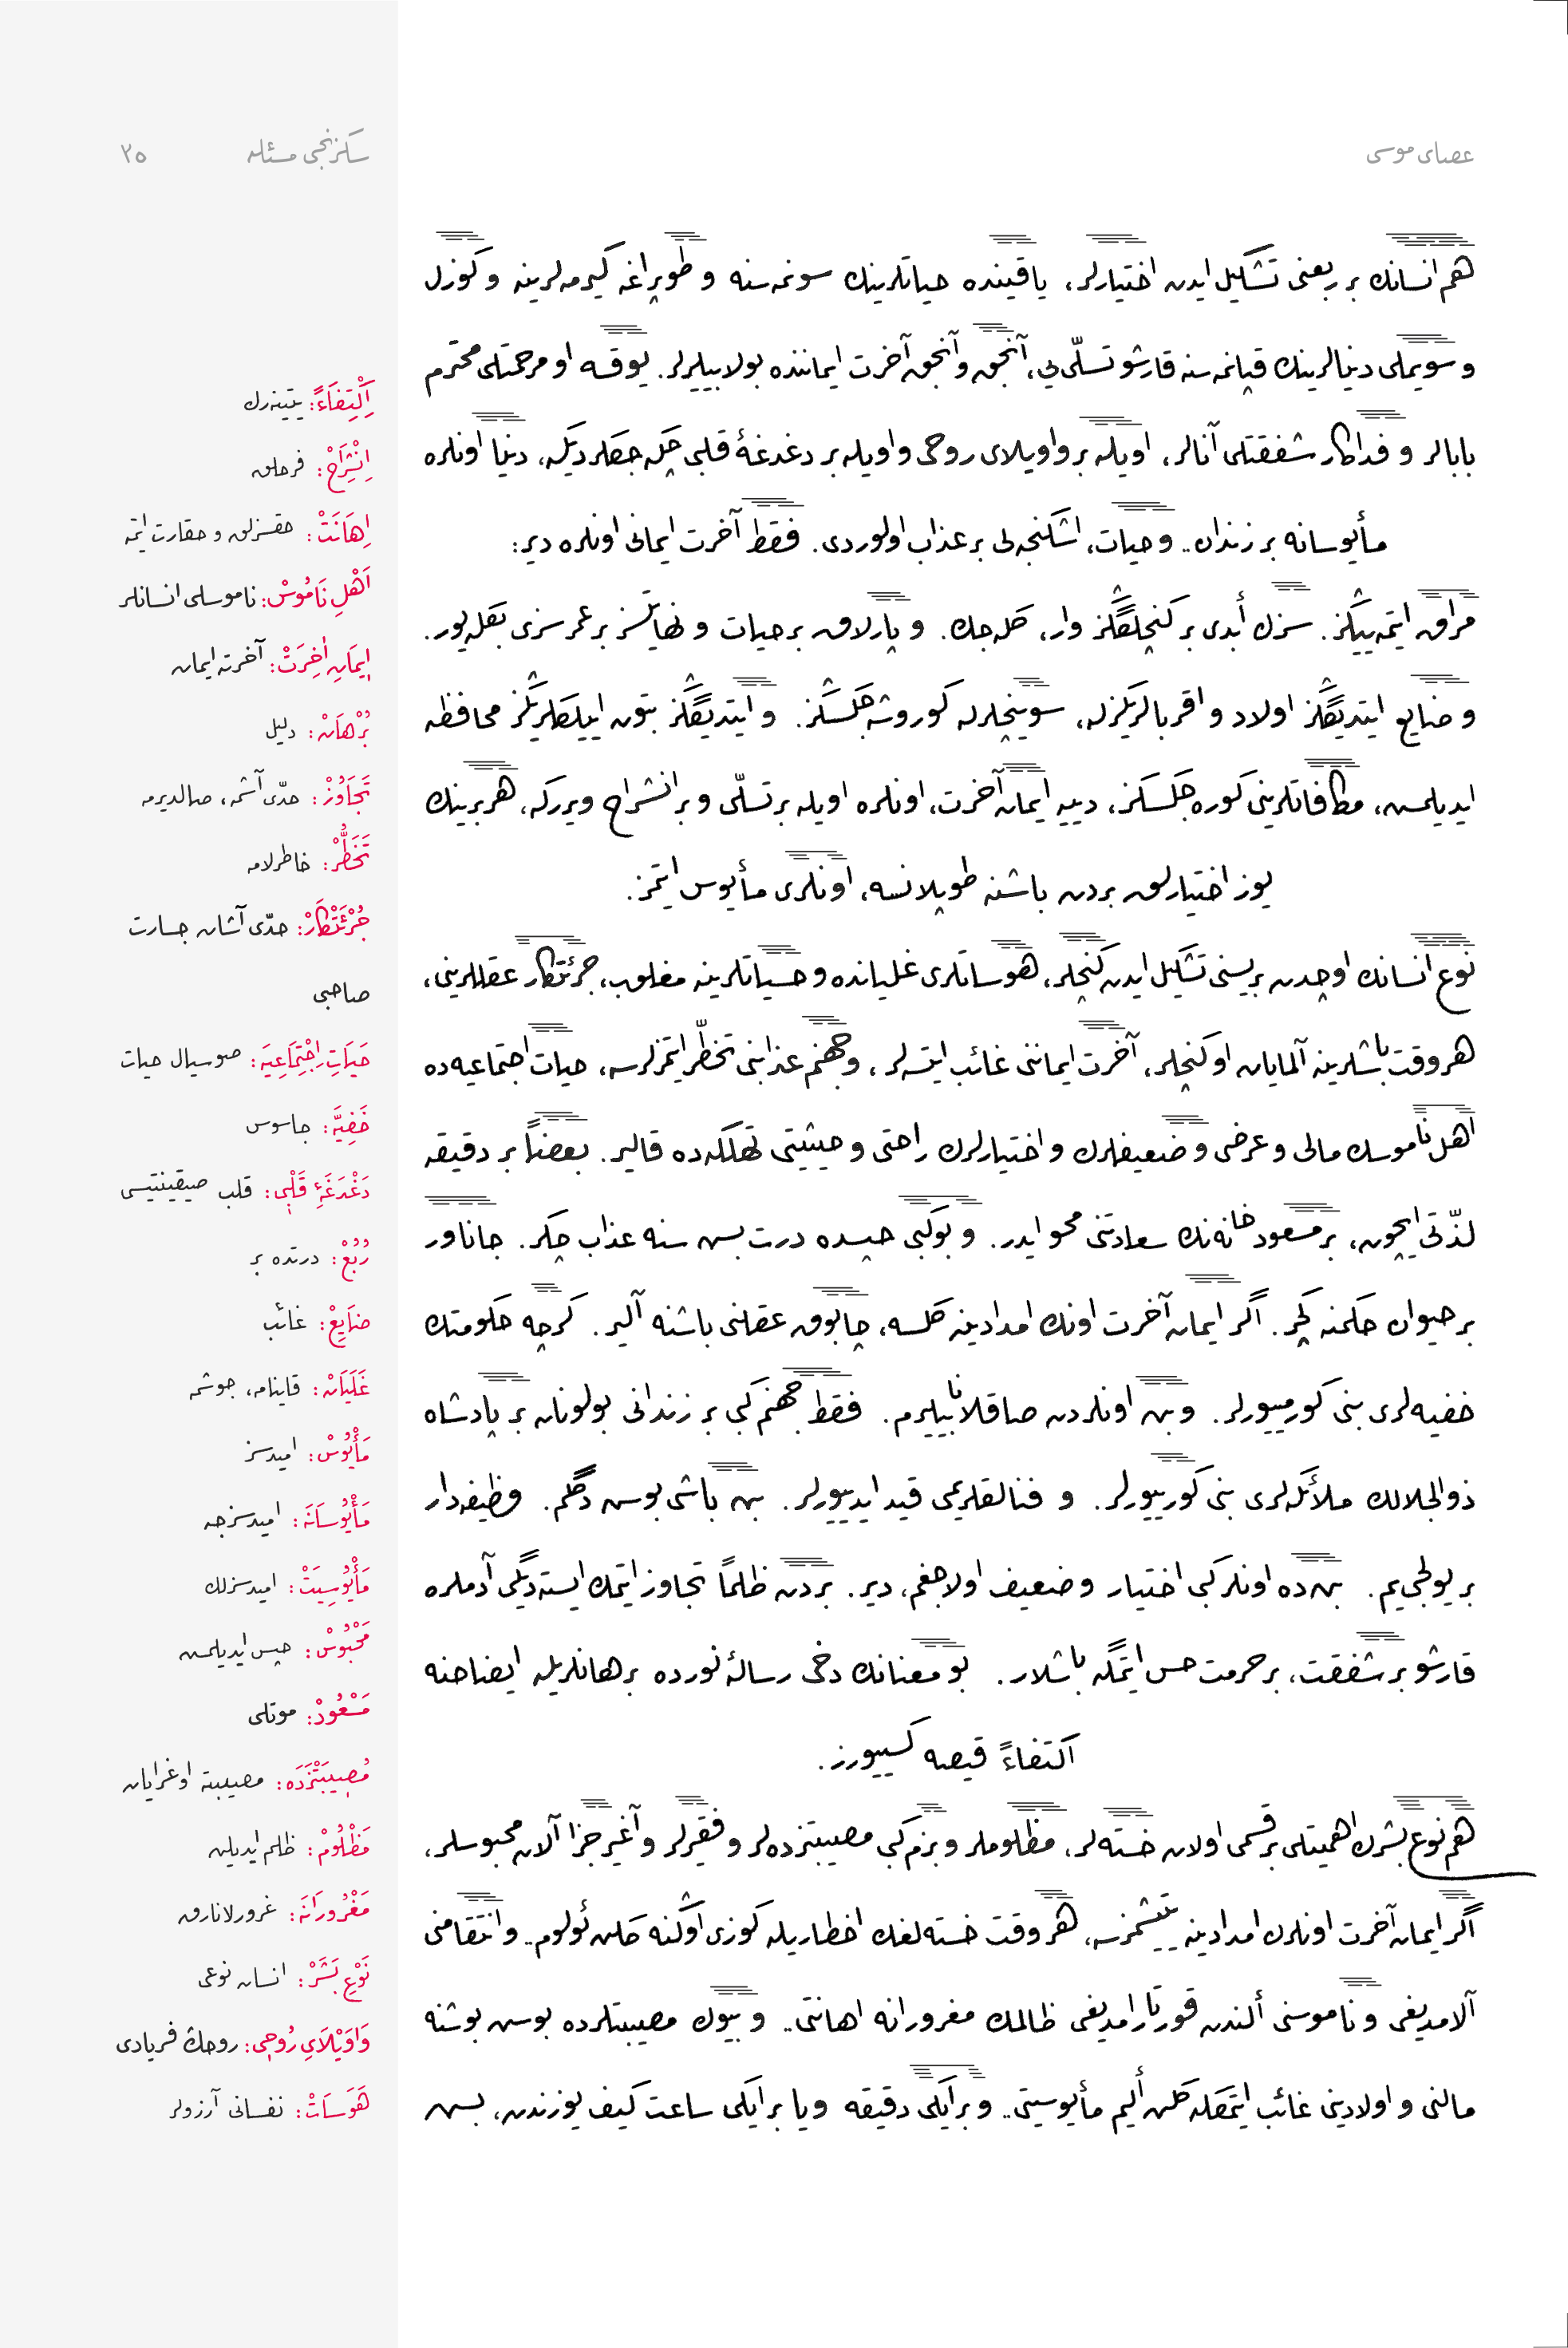 عصای موسى
سكزنجی مسئله ٢٥
هم انسانك بر ربعنی تشكیل ایدن اختیارلر، یاقینده حیاتلرینك سونمه‌سنه و طوپراغه گیرمه‌لرینه و كوزل
و سویملی دنیالرینك قپانمه‌سنه قارشو تسلّی‌یی، آنجق و آنجق آخرت ایماننده بولابیلیرلر. یوقسه او مرحمتلی محترم
بابالر و فداكار شفقتلی آنالر، اویله بر واویلای روحی و اویله بر دغدغهٔ قلبی چكه‌جكلردیكه، دنیا اونلره
مأیوسانه بر زندان.. و حیات، اشكنجه‌لی بر عذاب اولوردی. فقط آخرت ایمانی اونلره دیر:
مراق ایتمه‌ییڭز. سزك أبدی بر كنجلگڭز وار، كله‌جك. و پارلاق بر حیات و نهایتسز بر عمر سزی بكله‌یور.
و ضایع ایتدیگڭز اولاد و اقربالریڭزله، سوینجلرله كوروشه‌جكسڭز. و ایتدیگڭز بتون اییلكلریڭز محافظه
ایدیلمش، مكافاتلرینی كوره‌جكسڭز، دییه ایمان آخرت، اونلره اویله بر تسلّی و بر انشراح ویرركه، هر برینك
یوز اختیارلق بردن باشنه طوپلانسه، اونلری مأیوس ایتمز.
نوع انسانك اوچدن بریسنی تشكیل ایدن كنجلر، هوساتلری غلیانده و حسیاتلرینه مغلوب، جرئتكار عقللرینی،
هر وقت باشلرینه آلمایان او كنجلر، آخرت ایماننی غائب ایتسه‌لر، و جهنم عذابنی تخطّر ایتمزلرسه، حیات اجتماعیه‌ده
اهل ناموسك مالی و عرضی و ضعیفلرك و اختیارلرك راحتی و حیثیتی تهلكه‌ده قالیر. بعضاً بر دقیقه
لذّتی ایچون، بر مسعود خانه‌نك سعادتنی محو ایدر. و بو كبی حبسده درت بش سنه عذاب چكر. جاناور
بر حیوان حكمنه كچر. اگر ایمان آخرت اونك امدادینه كلسه، چابوق عقلنی باشنه آلیر. كرچه حكومتك
خفیه‌لری بنی كورمییورلر. و بن اونلردن صاقلانابیلیرم. فقط جهنم كبی بر زندانی بولونان بر پادشاه
ذوالجلالك ملائكه‌لری بنی كورییورلر. و فنالقلریمی قید ایدییورلر. بن باشی بوش دگلم. وظیفه‌دار
بر یولجی‌یم. بن‌ده اونلر كبی اختیار و ضعیف اولاجغم، دیر. بردن ظلماً تجاوز ایتمك ایسته‌دیگی آدملره
قارشو بر شفقت، بر حرمت حس ایتمگه باشلار. بو معنانك دخی رسالۀ نورده برهانلریله ایضاحنه
اكتفاءً قیصه كسییورز.
هم نوع بشرك اهمیتلی بر قسمی اولان خسته‌لر، مظلوملر و بزم كبی مصیبتزده‌لر و فقیرلر و آغیر جزا آلان محبوسلر،
اگر ایمان آخرت اونلرك امدادینه یتیشمزسه، هر وقت خسته‌لغك اخطاریله كوزی اوڭنه كلن ئولوم.. و انتقامنی
آلامدیغی و ناموسنی ألندن قورتارامدیغی ظالمك مغرورانه اهانتی.. و بیوك مصیبتلرده بوش بوشنه
مالنی و اولادینی غائب ایتمكله كلن ألیم مأیوسیتی.. و بر ایكی دقیقه ویا بر ایكی ساعت كیف یوزندن، بش
اِكْتِفَاءً: یتینه‌رك
اِنْشِرَاحْ: فرحلق
اِهَانَتْ: حقسزلق و حقارت ایتمه
اَهْلِ نَامُوسْ: ناموسلی انسانلر
اِیمَانِ اٰخِرَتْ: آخرته ایمان
بُرْهَانْ: دلیل
تَجَاوُزْ: حدّی آشمه، صالدیرمه
تَخَطُّرْ: خاطرلامه
جُرْئَتْكَارْ: حدّی آشان جسارت
صاحبی
حَیَاتِ اِجْتِمَاعِیَه: صوسیال حیات
خَفِیَّه: جاسوس
دَغْدَغَۀِ قَلْبِی: قلب صیقینتیسی
رُبُعْ: درتده بر
ضَایِعْ: غائب
غَلَیَانْ: قاینامه، جوشمه
مَأْیُوسْ: امیدسز
مَأْیُوسَانَه: امیدسزجه
مَأْیُوسِیَتْ: امیدسزلك
مَحْبُوسْ: حبس ایدیلمش
مَسْعُودْ: موتلی
مُصِیبَتْزَدَه: مصیبته اوغرایان
مَظْلُومْ: ظلم ایدیلن
مَغْرُورَانَه: غرورلانارق
نَوْعِ بَشَرْ: انسان نوعی
وَاوَیْلَایِ رُوحِی: روحڭ فریادی
هَوَسَاتْ: نفسانی آرزولر